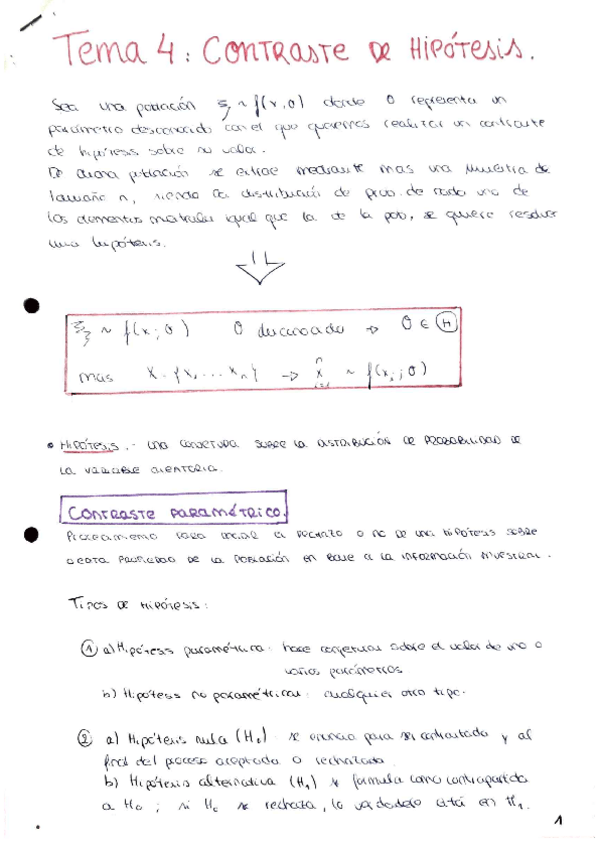 Tema 4: CONTRASTE DE HIPÓTESIS.
Sea una población ξ ~ f(x,θ) donde θ representa un
parámetro desconocido con el que queremos realizar un contraste
de hipótesis sobre su valor.
De dicha población se extrae mediante mas una muestra de
tamaño n, siendo la distribución de prob. de cada uno de
los elementos muestrales igual que la de la pob, se quiere resolver
una hipótesis.
ξ ~ f(x;θ) θ desconocido → θ ∈ Ⓗ
mas X = {x₁ ... xₙ} → ~ f(xᵢ;θ)
• HIPÓTESIS.- UNA CONJETURA SOBRE LA DISTRIBUCIÓN DE PROBABILIDAD DE
LA VARIABLE ALEATORIA.
CONTRASTE PARAMÉTRICO.
PARA EL RECHAZO O NO DE UNA HIPÓTESIS SOBRE
CIERTA PROPIEDAD DE LA POBLACIÓN EN BASE A LA INFORMACIÓN MUESTRAL.
TIPOS DE HIPÓTESIS:
① a) Hipótesis paramétrica: hace conjeturas sobre el valor de uno o
varios parámetros
b) Hipótesis no paramétricas: cualquier otro tipo.
② a) Hipótesis nula (H₀) se enuncia para ser contrastada y al
final del proceso aceptada o rechazada.
b) Hipótesis alternativa (H₁) se formula como contrapartida
a H₀; si H₀ se rechaza, la verdadera está en H₁.
1